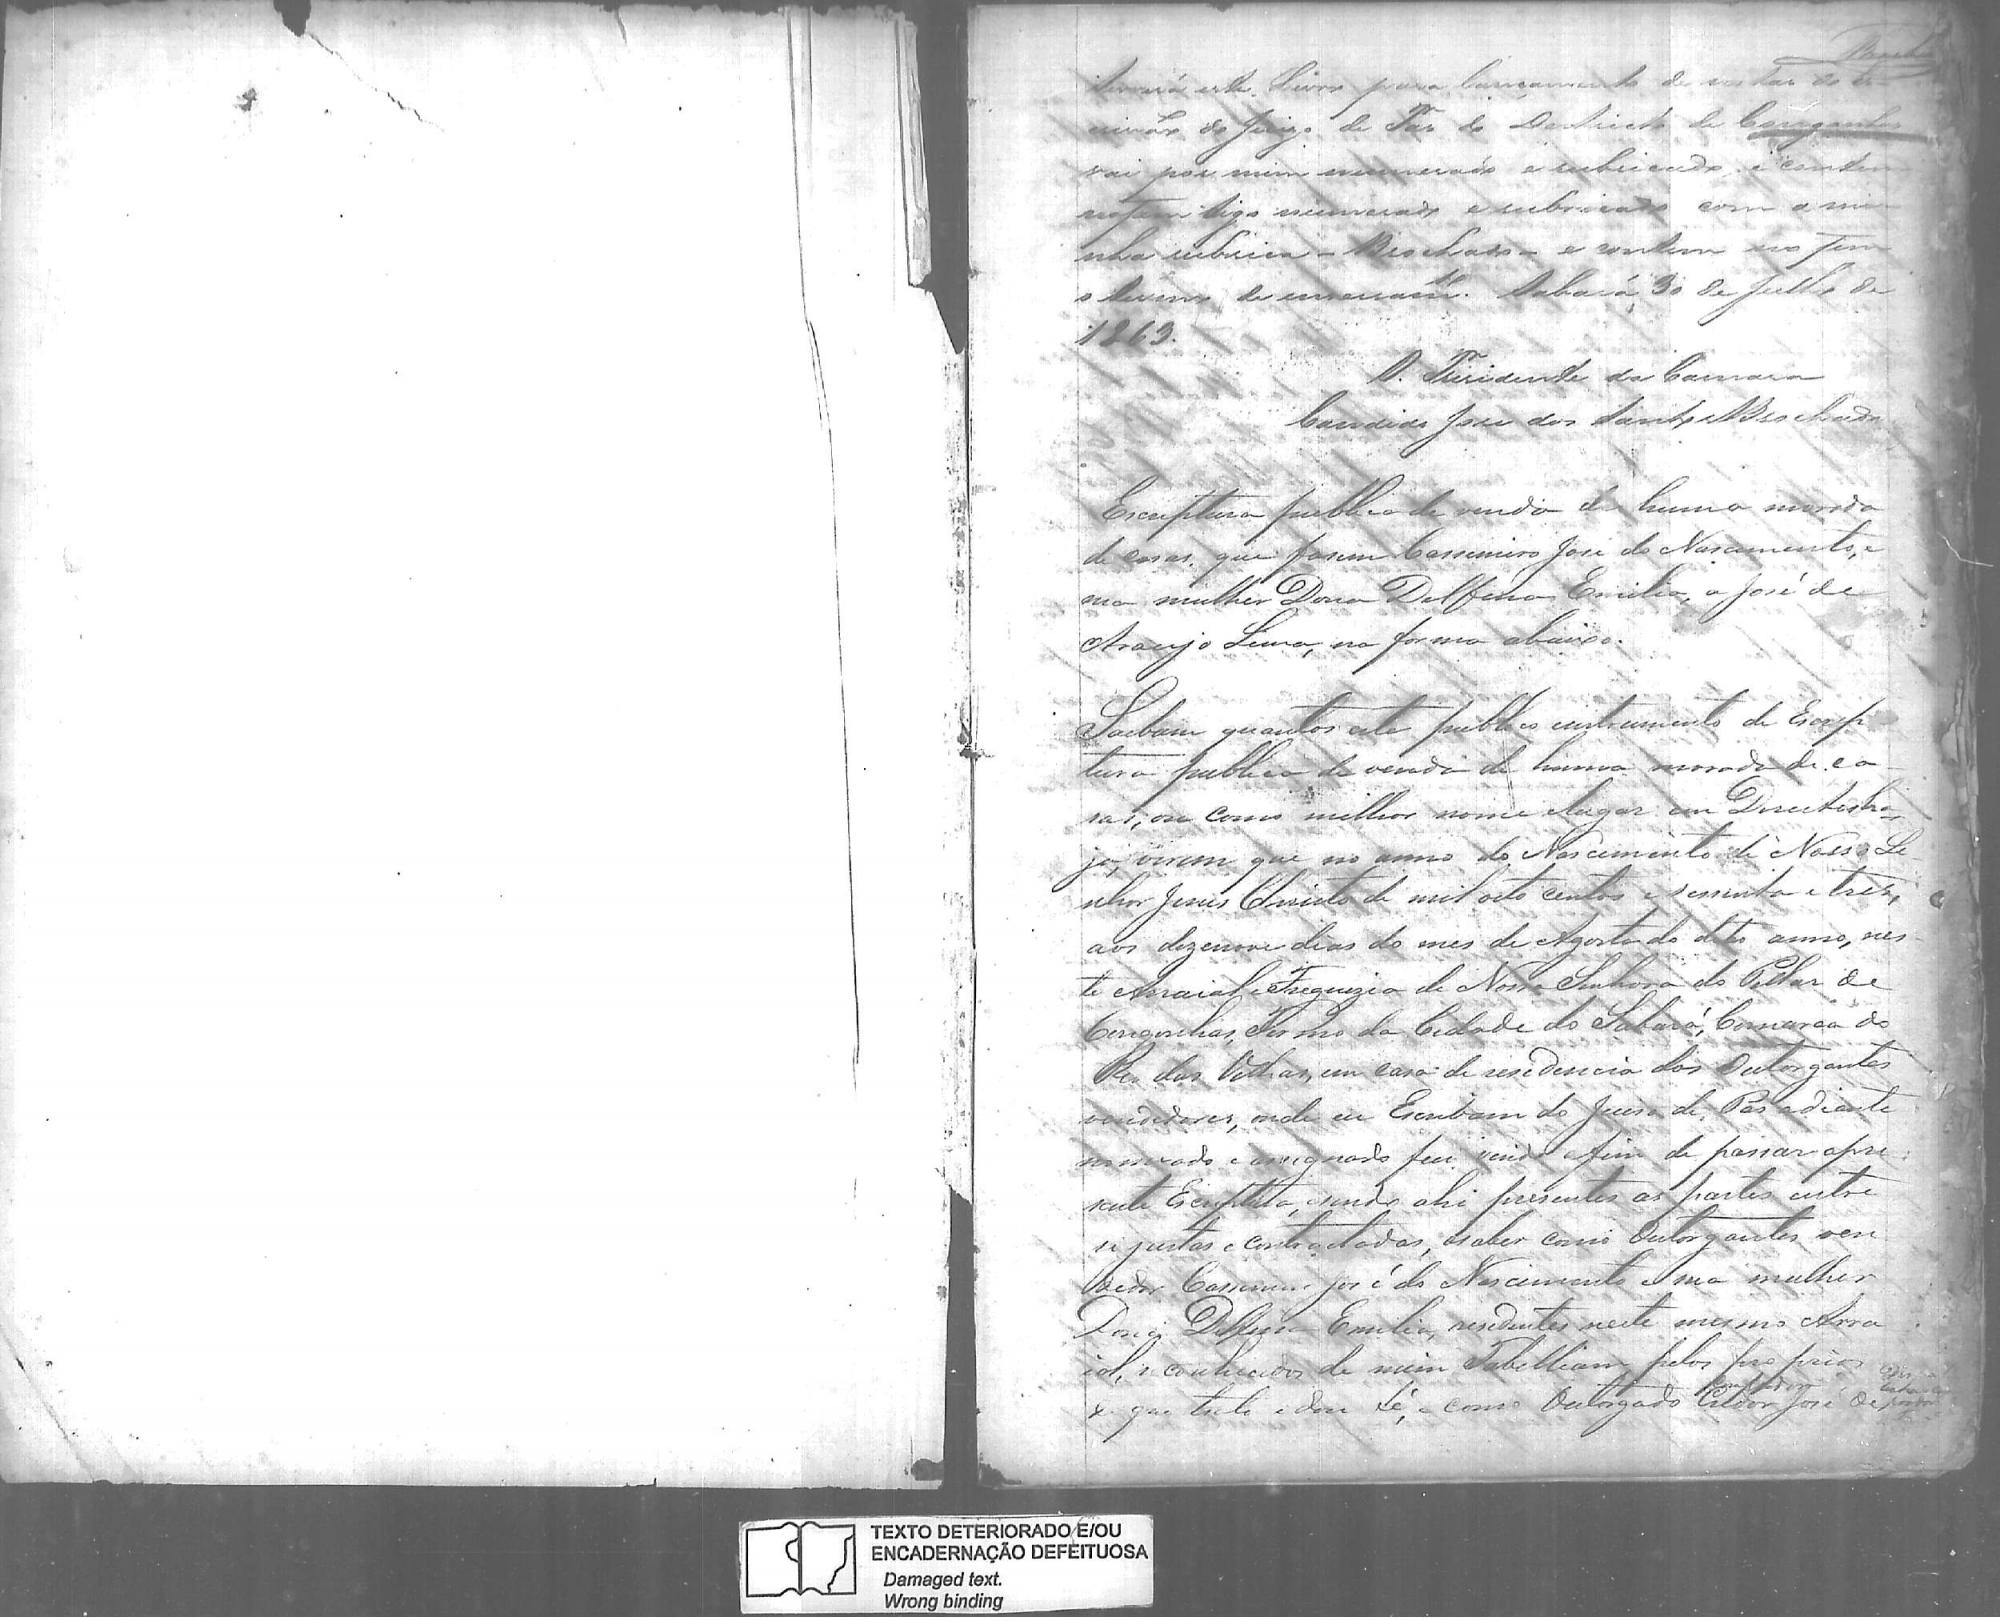 Servirá este Livro para lançamento de notas do Es-
crivão do Juizo de Paz do Destricto de Congonhas
vai por mim numerado e rubricado, e contem
digo numerado e rubricado com a mi-
nha rubrica - Brochado - e contem no fim
o termo de encerramto. Sabará 30 de Julho de
1863.
O Presidente da Camara
Candido Jose dos Santos Brochado
Escriptura publica de venda de huma morada
de casas, que fasem Cassemiro José do Nascimento, e
sua mulher Dona Delfina Emilia, a José de
Araujo Lima, na forma abaixo.
Saibam quantos este publico instrumento de Escrip
tura publica de venda de huma morada de ca-
sas, ou como milhor nome e lugar em Direito haja
ja, virem que no anno do Nascimento de Nosso Se-
nhor Jesus Christo de mil oito centos e sessenta e tres,
aos dezenove dias do mes de Agosto do dito anno, nes-
te Arraial e Freguezia de Nossa Senhora do Pillar de
Congonhas, Termo da Cidade do Sabará, Comarca do
Rio das Velhas, em casa de residencia dos Outorgantes
vendedores, onde eu Escrivam do Juiso de Pas adiante
nomeado e assignado fui vindo a fim de passar a pre-
sente Escriptura, e sendo ahi presentes as partes entre
si justas e contractadas, a saber como Outorgantes ven
dedor Cassemiro José do Nascimento e sua mulher
Dona Delfina Emilia, residentes neste mesmo Arra
ial, reconhecidos de mim Tabelliam pelos proprios
de que trato e dou fé, e como Outorgado comprador José de
TEXTO DETERIORADO E/OU
ENCADERNAÇÃO DEFEITUOSA
Damaged text.
Wrong binding